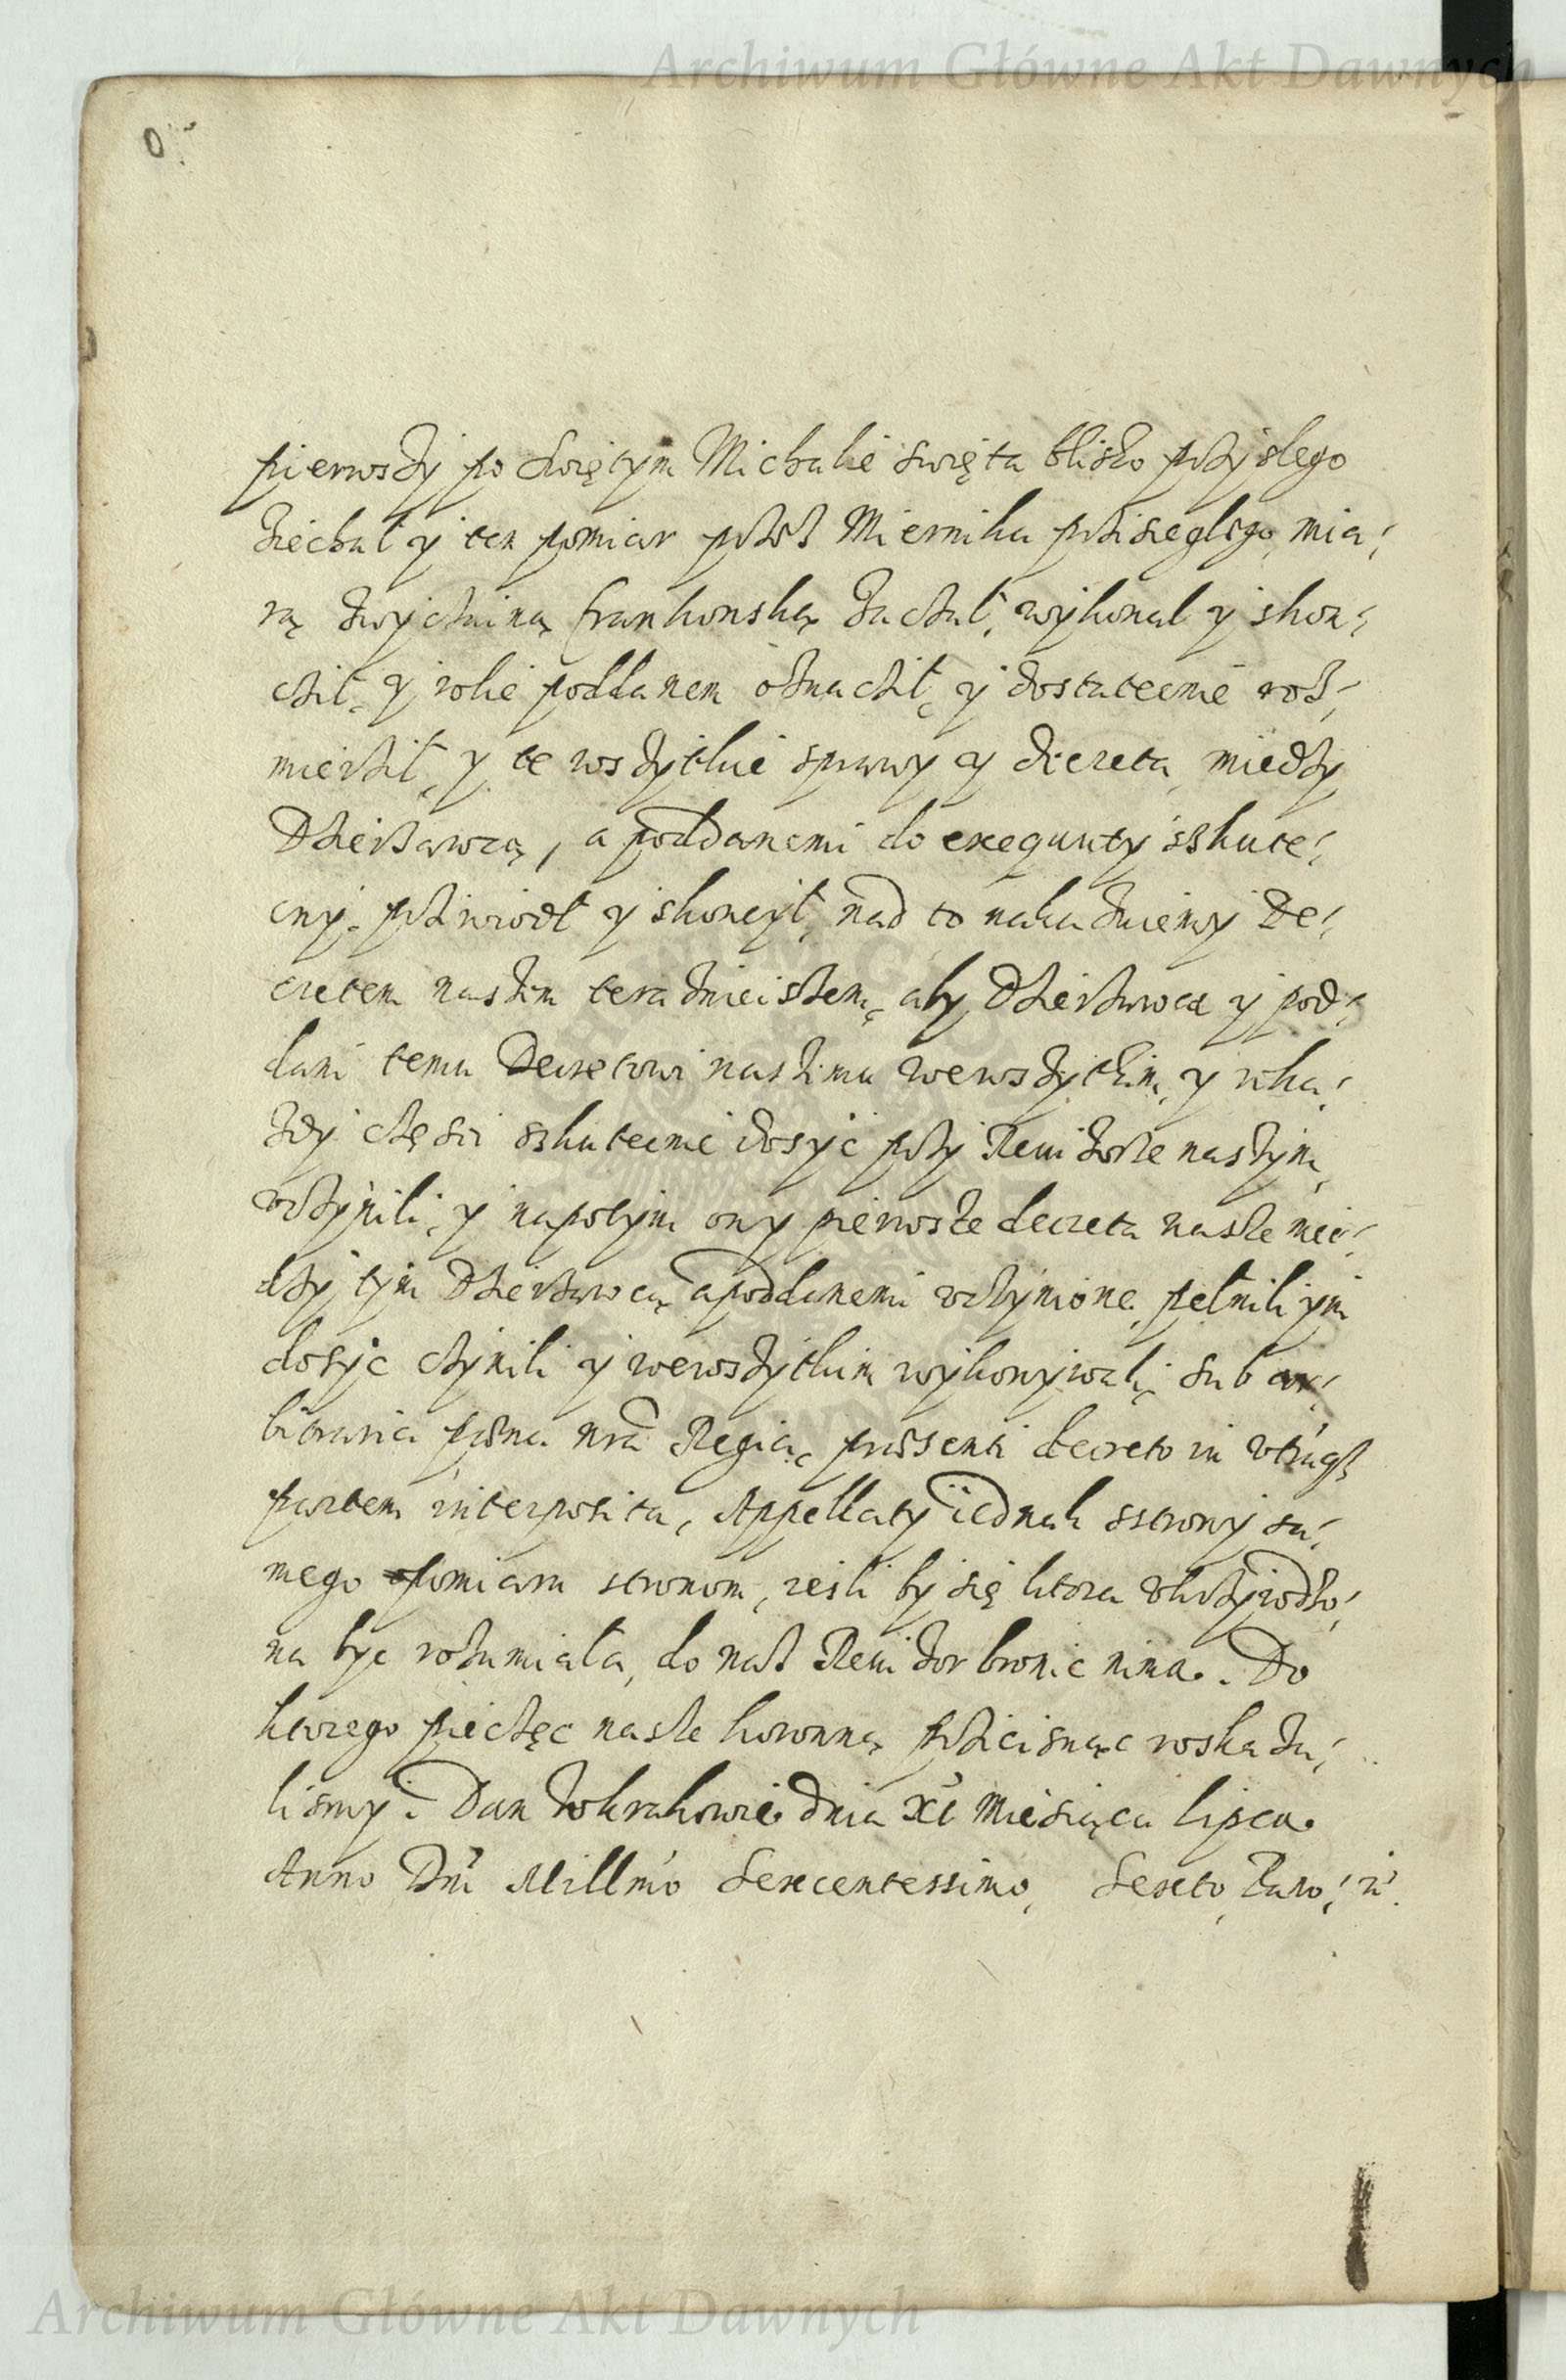 Archiwum Główne Akt Dawnych
pierwszy po Swiętym Michale swięta blisko przyslego
ziechal y ten pomiar przez Miernika prziseglego, mia:
rą zwyczainą frankonską zaczał, wykonal y skon:
cził, y role poddanem oznacził, y dostatecnie roz:
mierził, y te wszytkie sprawy y decreta, miedzy
Dzierzawcą, a poddanemi do exequuty sskute:
cny, prziwiodł y skoncył, nad to nakazuiemy De:
cretem naszem teraznieiszem, aby Dzierzawca y pod:
dani temu Decretowi naszimu wewszytkim, y wka:
zdy częsci sskutecnie dosyc przy Revizorze naszym,
vczynili, y napotym ony pierwsze decreta nasze mie:
dzy tym Dzierzawcą a poddanemi vczynione, pełnili ym
dosyc czynili y wewszytkim wykonywali, sub ar:
bitraria pæna nrã Regia, præssenti decreto in vtrãq3
partem interposita, Appellaty iednak sstrony sa:
mego pomiaru stronom, iesli by się ktora vkrzywdzo:
na byc rozumiała, do nas Revizor bronic nima. Do
ktorego pieczęc nasze koronną przicisnąc roskaza:
lismy. Dan wkrakowie dnia XI Miesiąca lipca.
Anno Dñi Millmo Sexcentessimo, Sexto,
Archiwum Główne Akt Dawnych